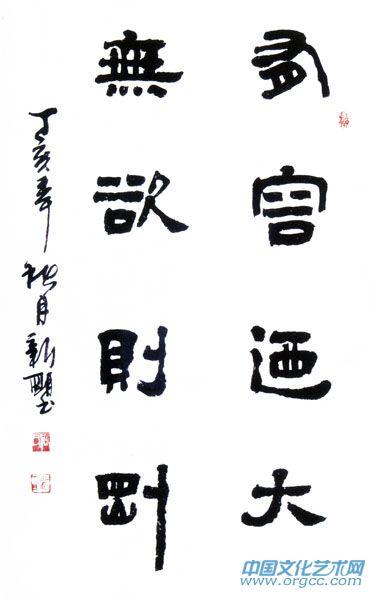 有容迺大
無欲則剛
丁亥年秋月新
中国文化艺术网
www.orgcc.com